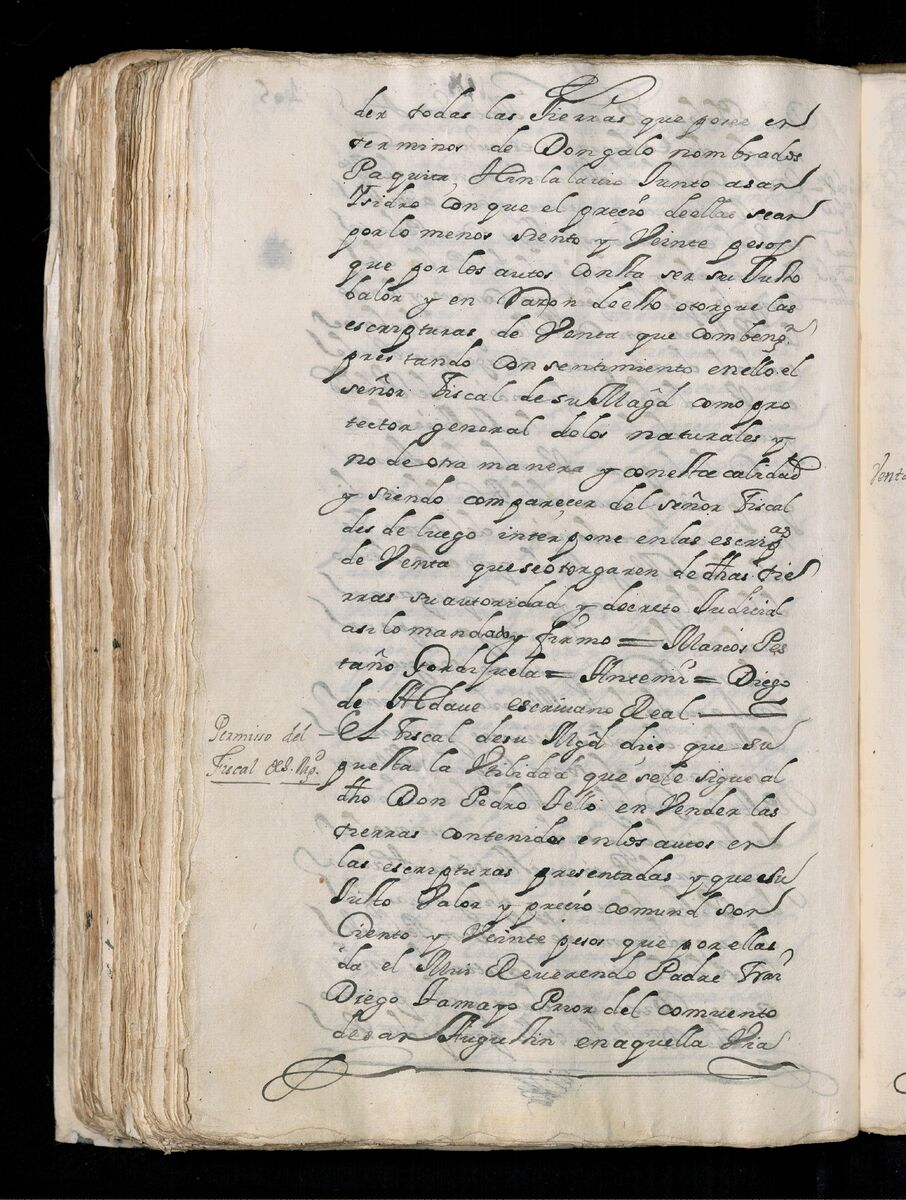 der todas las Tierras que posee en
terminos de Dongalo nombrados
Paquita, Hinlalauio Junto a san
Isidro, con que el precio de ellas sean
por lo menos siento y Veinte pesos
que por los autos Consta ser su Justo
balor y en Razon de ello otorgue las
escripturas de Venta que combengn
prestando consentimiento en ello el
señor Fiscal de su Magd como pro
tector general de los naturales y
no de otra manera y con esta calidad
y siendo comparecer del señor Fiscal
des de luego interpone en las escripas
de Venta que se otorgaren de dhas tie
rras su autoridad y decreto Judicial
asi lo mandado y firmo = Marcos Pes
taño = Antemi = Diego
de Aldaue escriuano Real
Permisso del
Fiscal de S. Mgd.
El Fiscal de su Mgd dice que su
puesta la Vtilidad que se le sigue al
dho Don Pedro Tello en Vender las
tierras contenidas en los autos en
las escripturas presentadas y que su
Justo Valor y precio comun son
Ciento y Veinte pesos que por ellas
da el Mui Reuerendo Padre Frai
Diego Tamayo Prior del comuento
de san Augustin en aquella Via
Venta